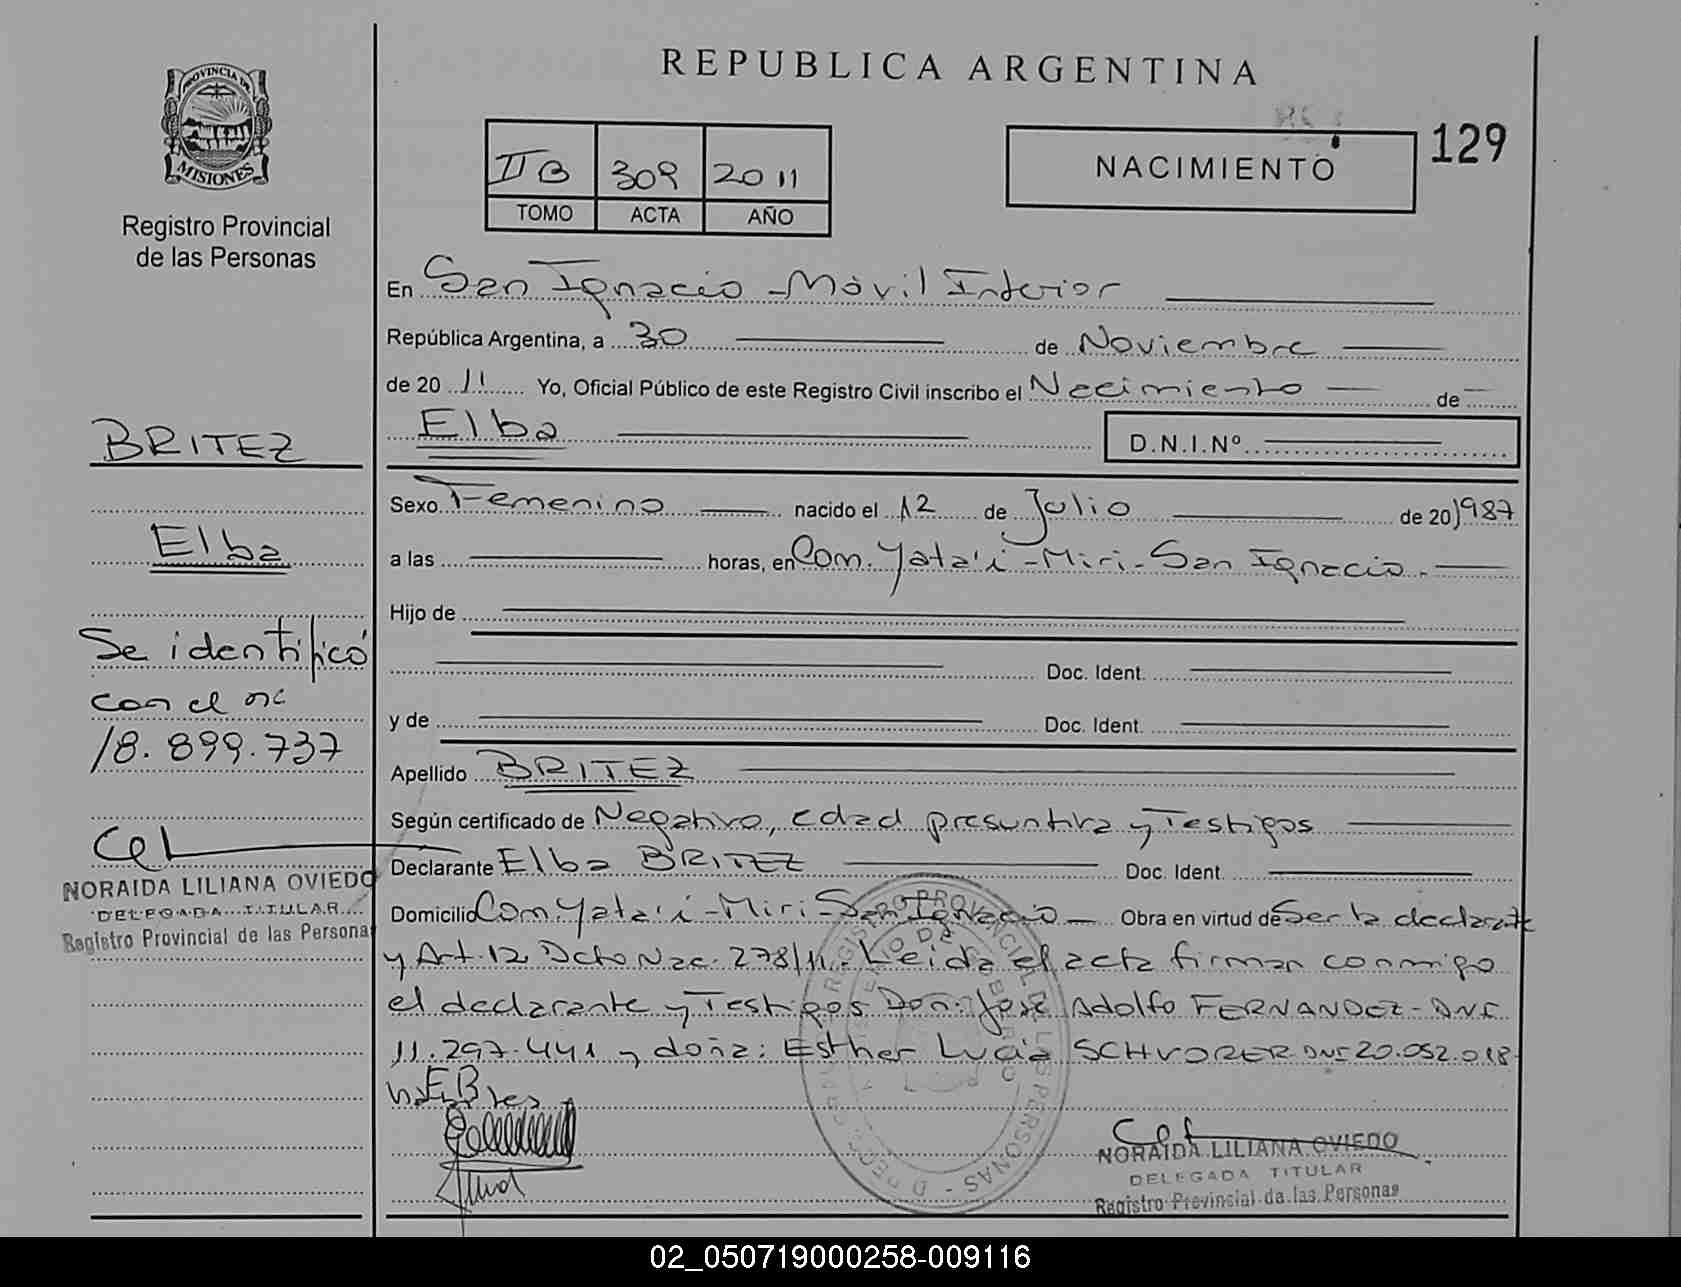 REPUBLICA ARGENTINA
PROVINCIA DE
MISIONES
Registro Provincial
de las Personas
IIB 309 2011
TOMO ACTA AÑO
NACIMIENTO
129
En San Ignacio - Móvil Interior
República Argentina, a 30 de Noviembre
de 20 11 Yo, Oficial Público de este Registro Civil inscribo el Nacimiento de
Elba D.N.I.Nº
BRITEZ
Elba
Se identificó
con el
18.899.737
NORAIDA LILIANA OVIEDO
DELEGADA TITULAR
Registro Provincial de las Persona
Sexo Femenino nacido el 12 de Julio de 20 1987
a las horas, en Com. Yata'i - Miri - San Ignacio.
Hijo de
Doc. Ident.
y de Doc. Ident.
Apellido BRITEZ
Según certificado de Negativo, edad presuntiva y Testigos
Declarante Elba BRITEZ Doc. Ident.
Domicilio Com. Yata'i - Miri - San Ignacio Obra en virtud de Ser la declarante
y Art. 12 Dcto Nac. 278/11. Leida el acta firman conmigo
el declarante y Testigos Don: José Adolfo FERNANDEZ - DNI
11.297.441 y doña: Esther Lucia SCHVORER DNI 20.052.018
EB
NORAIDA LILIANA OVIEDO
DELEGADA TITULAR
Registro Provincial de las Personas
02_050719000258-009116